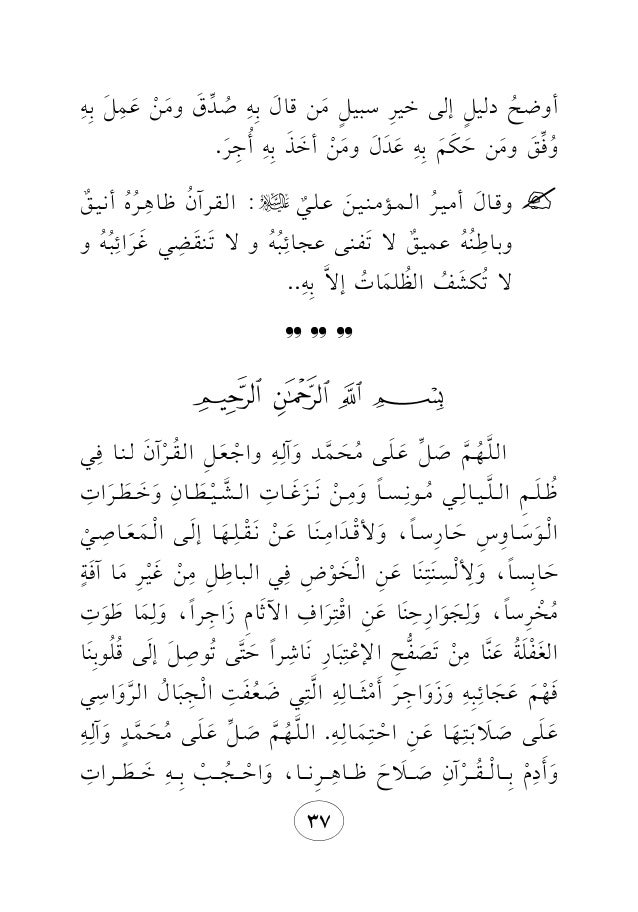 أوضحُ دليلٍ إلى خيرِ سبيلٍ مَن قالَ بِهِ صُدِّقَ ومَنْ عَمِلَ بِهِ
وُفِّقَ ومَن حَكَمَ بِهِ عَدَلَ ومَنْ أخَذَ بِهِ أُجِرَ.
وقالَ أميرُ المؤمنينَ عليٌ عليه السلام: القرآنُ ظاهِرُهُ أنيقٌ
وباطِنُهُ عميقٌ لا تَفنى عجائِبُهُ و لا تَنقَضِي غَرَائِبُهُ و
لا تُكشَفُ الظُلمَاتُ إلاَّ بِهِ..
بِسْمِ اللَّهِ الرَّحْمَٰنِ الرَّحِيمِ
اللَّهُمَّ صَلِّ عَلَى مُحَمَّد وَآلِهِ واجْعَلِ القُرْآنَ لنا فِي
ظُلَمِ اللَّيالِي مُونِساً وَمِنْ نَزَغَاتِ الشَّيْطَانِ وَخَطَرَاتِ
الْوَسَاوِسِ حَارِساً، وَلأقْدَامِنَا عَنْ نَقْلِهَا إلَى الْمَعَاصِيْ
حَابِساً، وَلِألْسِنَتِنَا عَنِ الْخَوْضِ فِي الباطِلِ مِنْ غَيْرِ مَا آفَةٍ
مُخْرِساً، وَلِجَوَارِحِنَا عَنِ اقْتِرَافِ الآثَامِ زَاجِراً، وَلِمَا طَوَتِ
الغَفْلَةُ عَنَّا مِنْ تَصَفُّحِ الإعْتِبَارِ نَاشِراً حَتَّى تُوصِلَ إلَى قُلُوبِنَا
فَهْمَ عَجَائِبِهِ وَزَوَاجِرَ أَمْثَالِهِ الَّتِي ضَعُفَتِ الْجِبَالُ الرَّوَاسِي
عَلَى صَلَابَتِهَا عَنِ احْتِمَالِهِ. اللَّهُمَّ صَلِّ عَلَى مُحَمَّدٍ وَآلِهِ
وَأَدِمْ بِالْقُرْآنِ صَلَاحَ ظاهِرِنا، وَاحْجُبْ بِهِ خَطَراتِ
٣٧